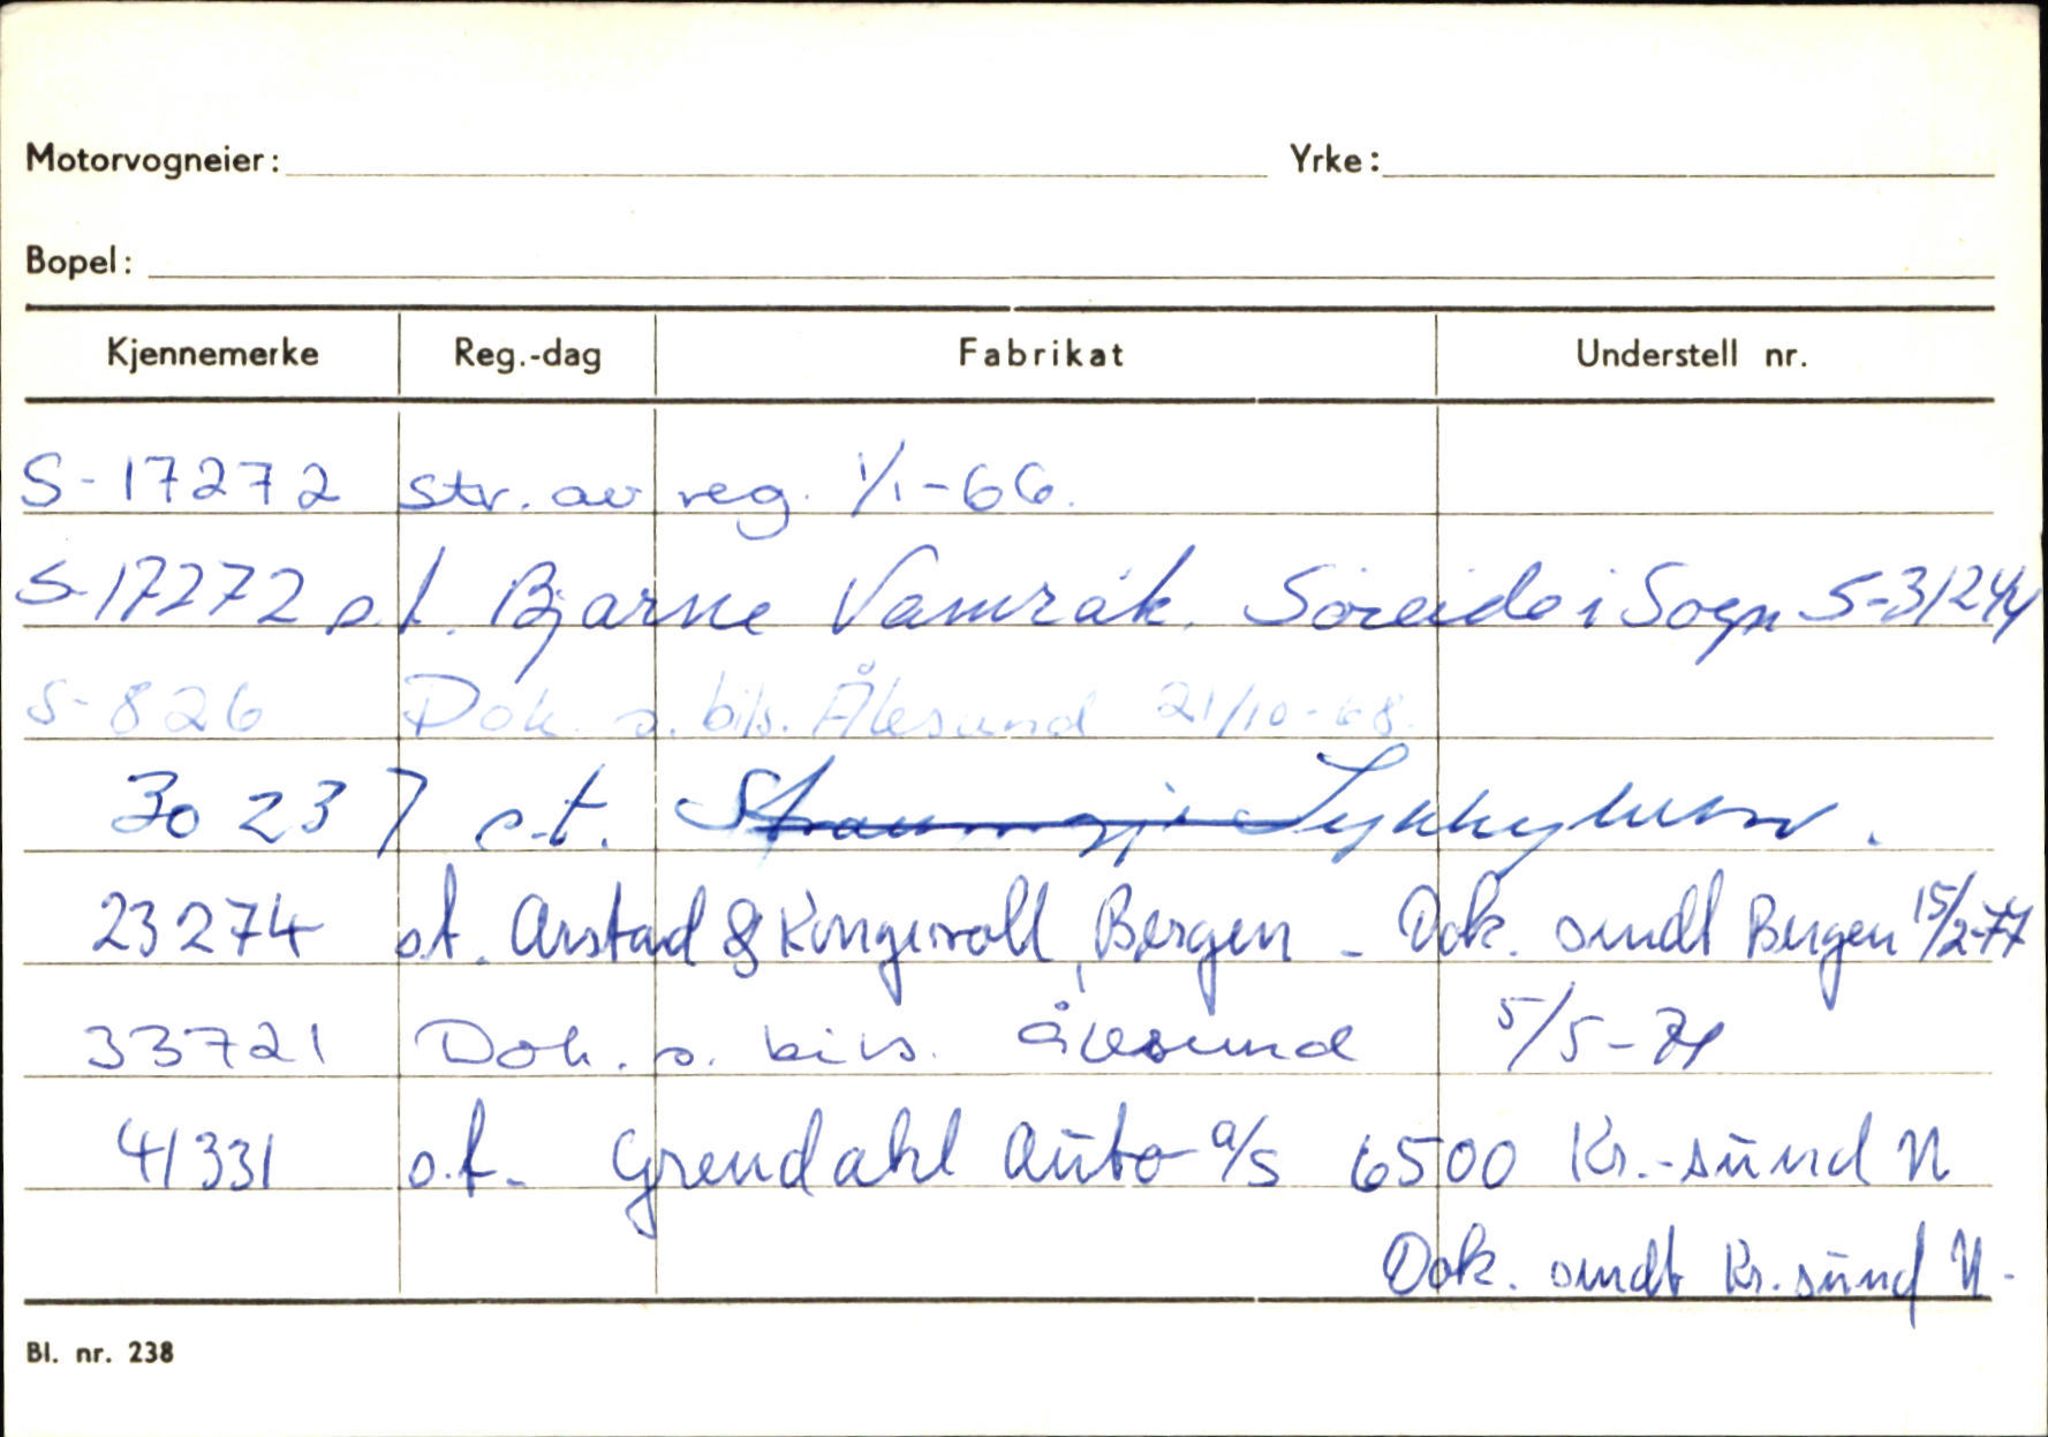 Motorvogneier: Yrke:
Bopel:
Kjennemerke Reg.-dag Fabrikat Understell nr.
S-17272 str. av reg. 1/1-66.
S-17272 o.t. Bjarne Vamråk. Søreide i Sogn S-31244
S-826 Dok. s. bils. Ålesund 21/10-68.
30237 o.t. Sykkylven.
23274 o.t. Arstad & Kongsvoll, Bergen - Dok. sendt Bergen 15/2-77
33721 Dok. s. bils. Ålesund 5/5-71
41331 o.t. Grendahl Auto a/s 6500 Kr.-sund N
Dok. sendt Kr.sund N.
Bl. nr. 238